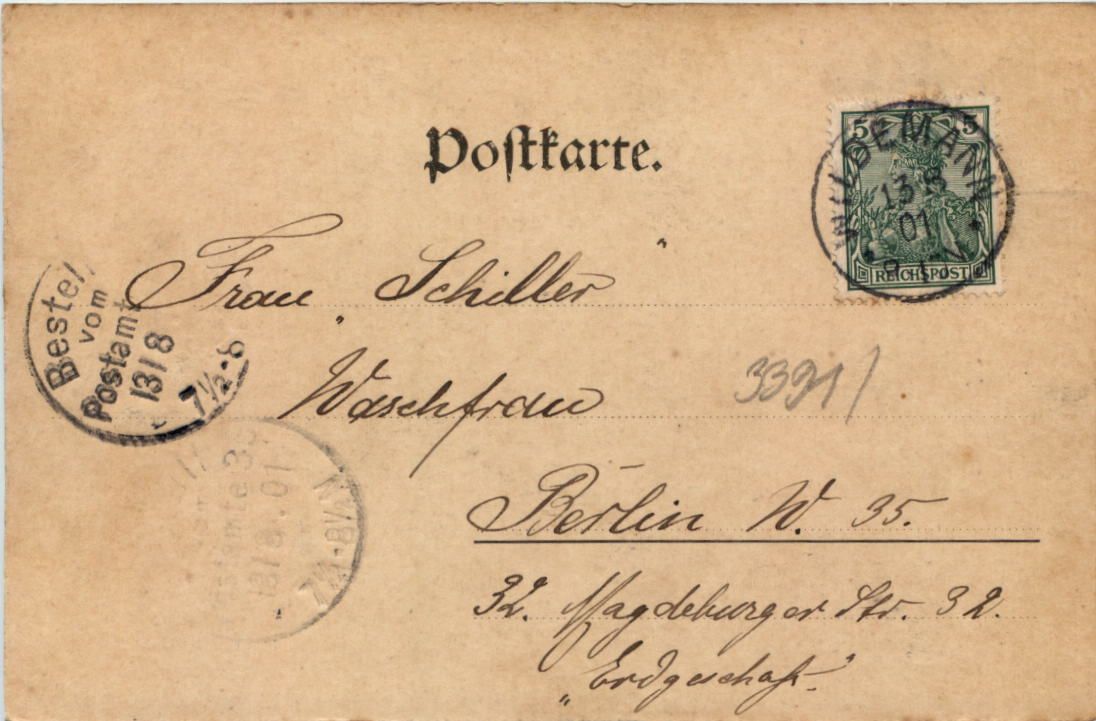 Postkarte.
5 5
WILDEMANN
13 8
01
REICHSPOST
Frau Schiller
Waschfrau
Berlin W. 35.
32. Magdeburger Str. 32.
"Erdgeschoß."
3391/
Bestell
vom
Postamt
13/8
7½-8
13/8.01
7½-8½N